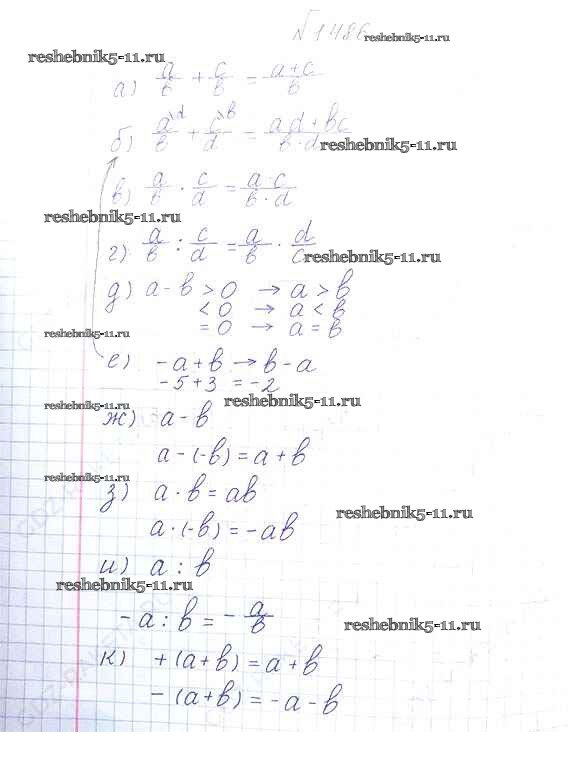 №1486
reshebnik5-11.ru
reshebnik5-11.ru
а) a/b + c/b = a+c/b
б) a\d/b + c\b/d = ad+bc/b·d
reshebnik5-11.ru
в) a/b · c/d = a·c/b·d
reshebnik5-11.ru
г) a/b : c/d = a/b · d/c
reshebnik5-11.ru
д) a-b >0 → a>b
<0 → a<b
=0 → a=b
reshebnik5-11.ru
е) -a+b → b-a
-5+3 = -2
reshebnik5-11.ru
reshebnik5-11.ru
ж) a-b
a-(-b)=a+b
reshebnik5-11.ru
з) a·b=ab
reshebnik5-11.ru
a·(-b)=-ab
и) a:b
reshebnik5-11.ru
-a:b=-a/b
reshebnik5-11.ru
к) +(a+b)=a+b
-(a+b)=-a-b